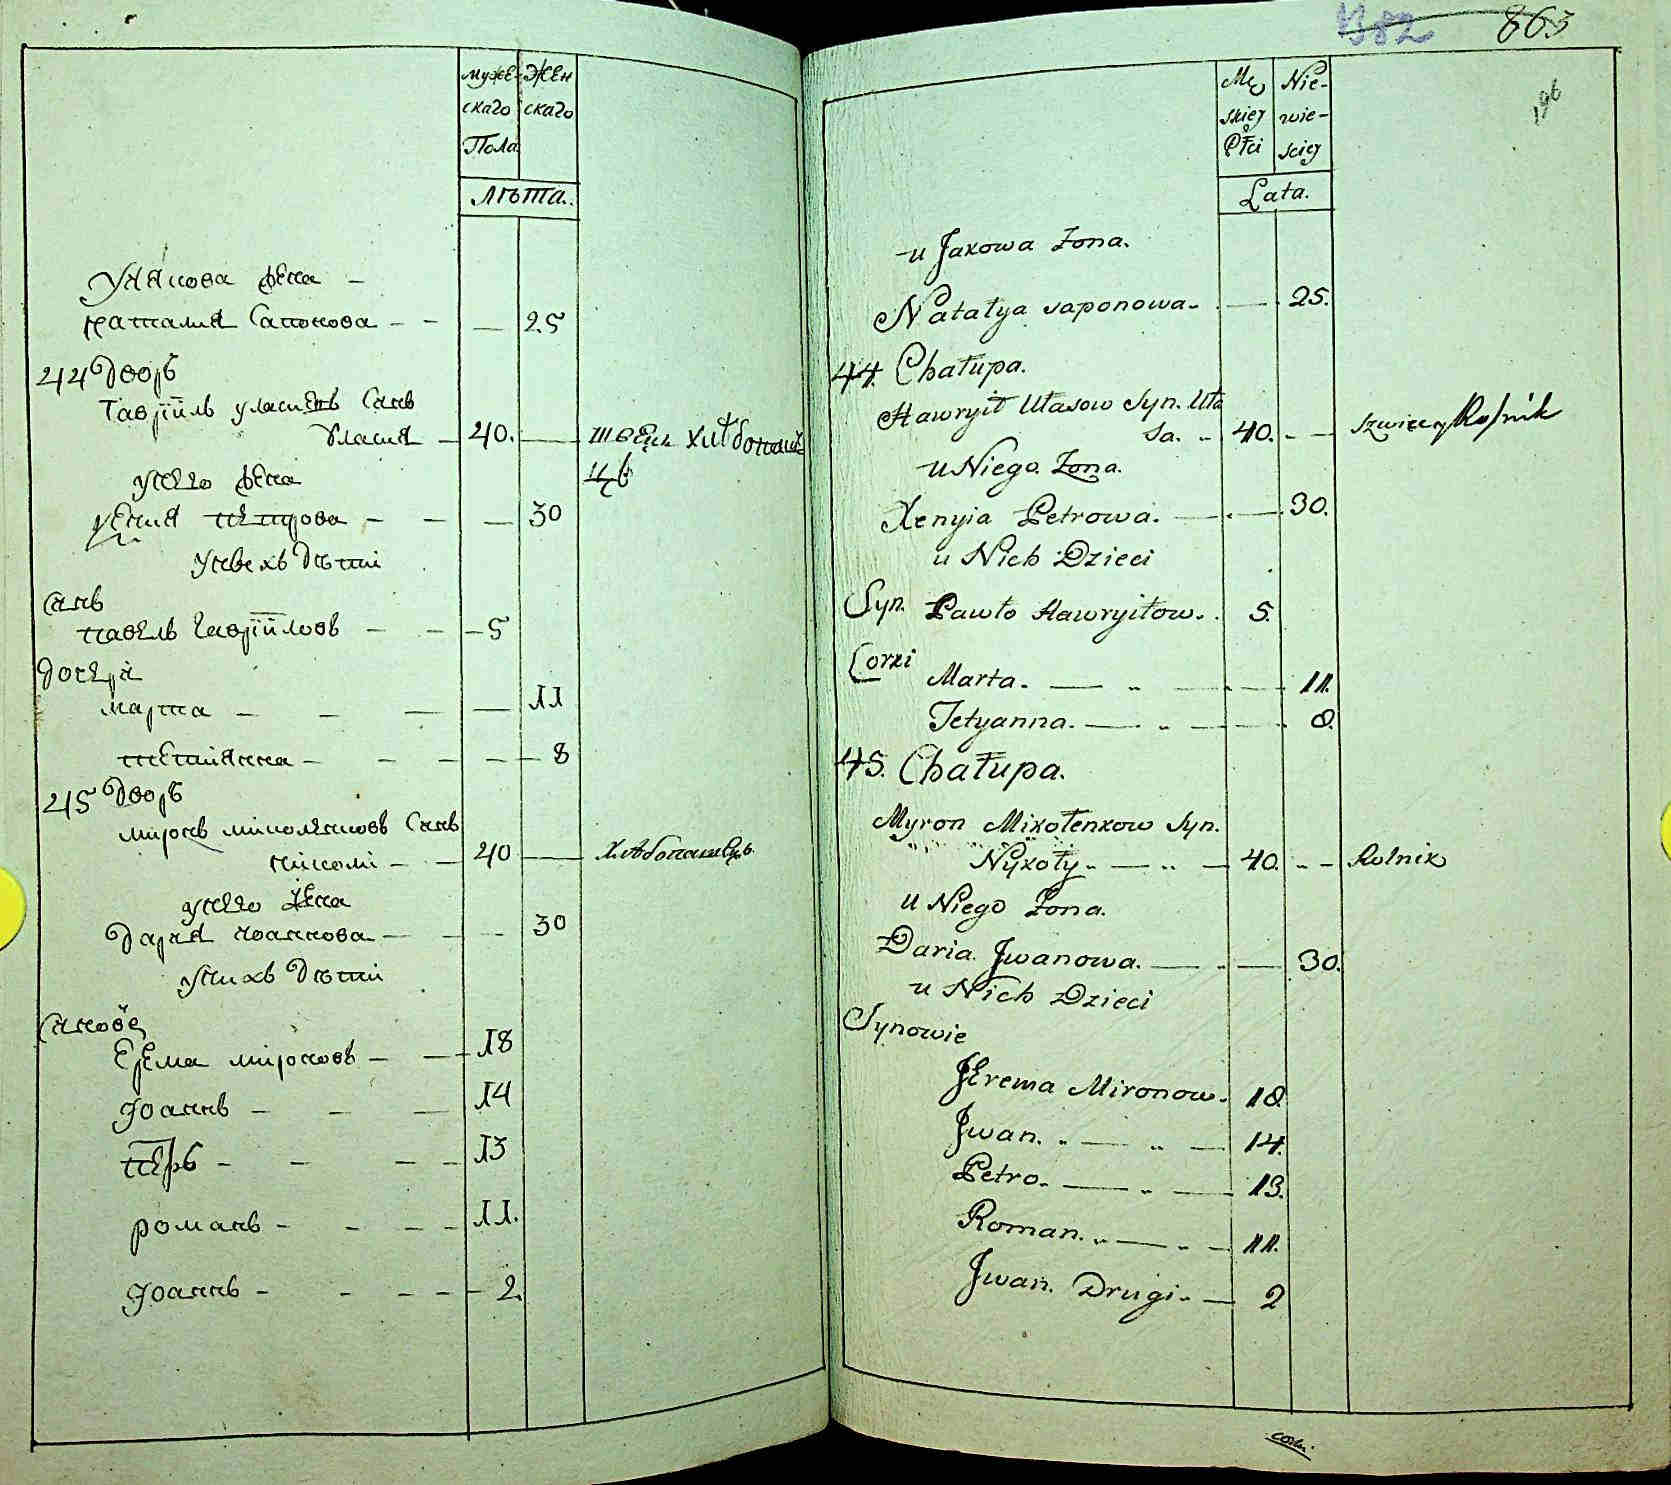 муже- Жен
скаго скаго
Пола
лѣта.
У Якова жена —
наталия Сапонова — — — 25
44 Дворъ
Гаврїилъ уласивъ Синъ
Уласия — 40. — швецъ хлѣбопаше-
цъ
у него жена
ксения петрова — — — 30
у нихъ дѣти
Синъ
павелъ Гаврїиловъ — — — 5
дочеря
марта — — — — 11
тетиянна — — — — 8
45 Дворъ
миронъ миколенковъ Синъ
николи — — 40 — Хлѣбопашецъ
у него жена
дария иоаннова — — — 30
у нихъ дѣти
Синове
Ерема мироновъ — — 18
Иоаннъ — — — 14
петръ — — — — 13
романъ — — — — 11.
Иоаннъ — — — — 2.
382 863
196
Mę- Nie-
skiej wie-
Płci sciej
Lata.
u Jakowa Żona.
Natałya saponowa. — 25.
44. Chałupa.
Hawryił Ułasow Syn. Uła
sa. 40. — szwiec y Rolnik
u Niego Żona.
Xenyia Petrowa. — — 30.
u Nich Dzieci
Syn. Pawło Hawryiłow. 5.
Corki
Marta. — — — 11.
Tetyanna. — — — 8.
45. Chałupa.
Myron Mikołenkow Syn.
Nykoły. — — 40. — Rolnik
u Niego Żona.
Daria Jwanowa. — — 30.
u Nich Dzieci
Synowie
Jerema Mironow. 18
Jwan. — — 14.
Petro. — — 13.
Roman. — — 11.
Jwan. Drugi. — 2